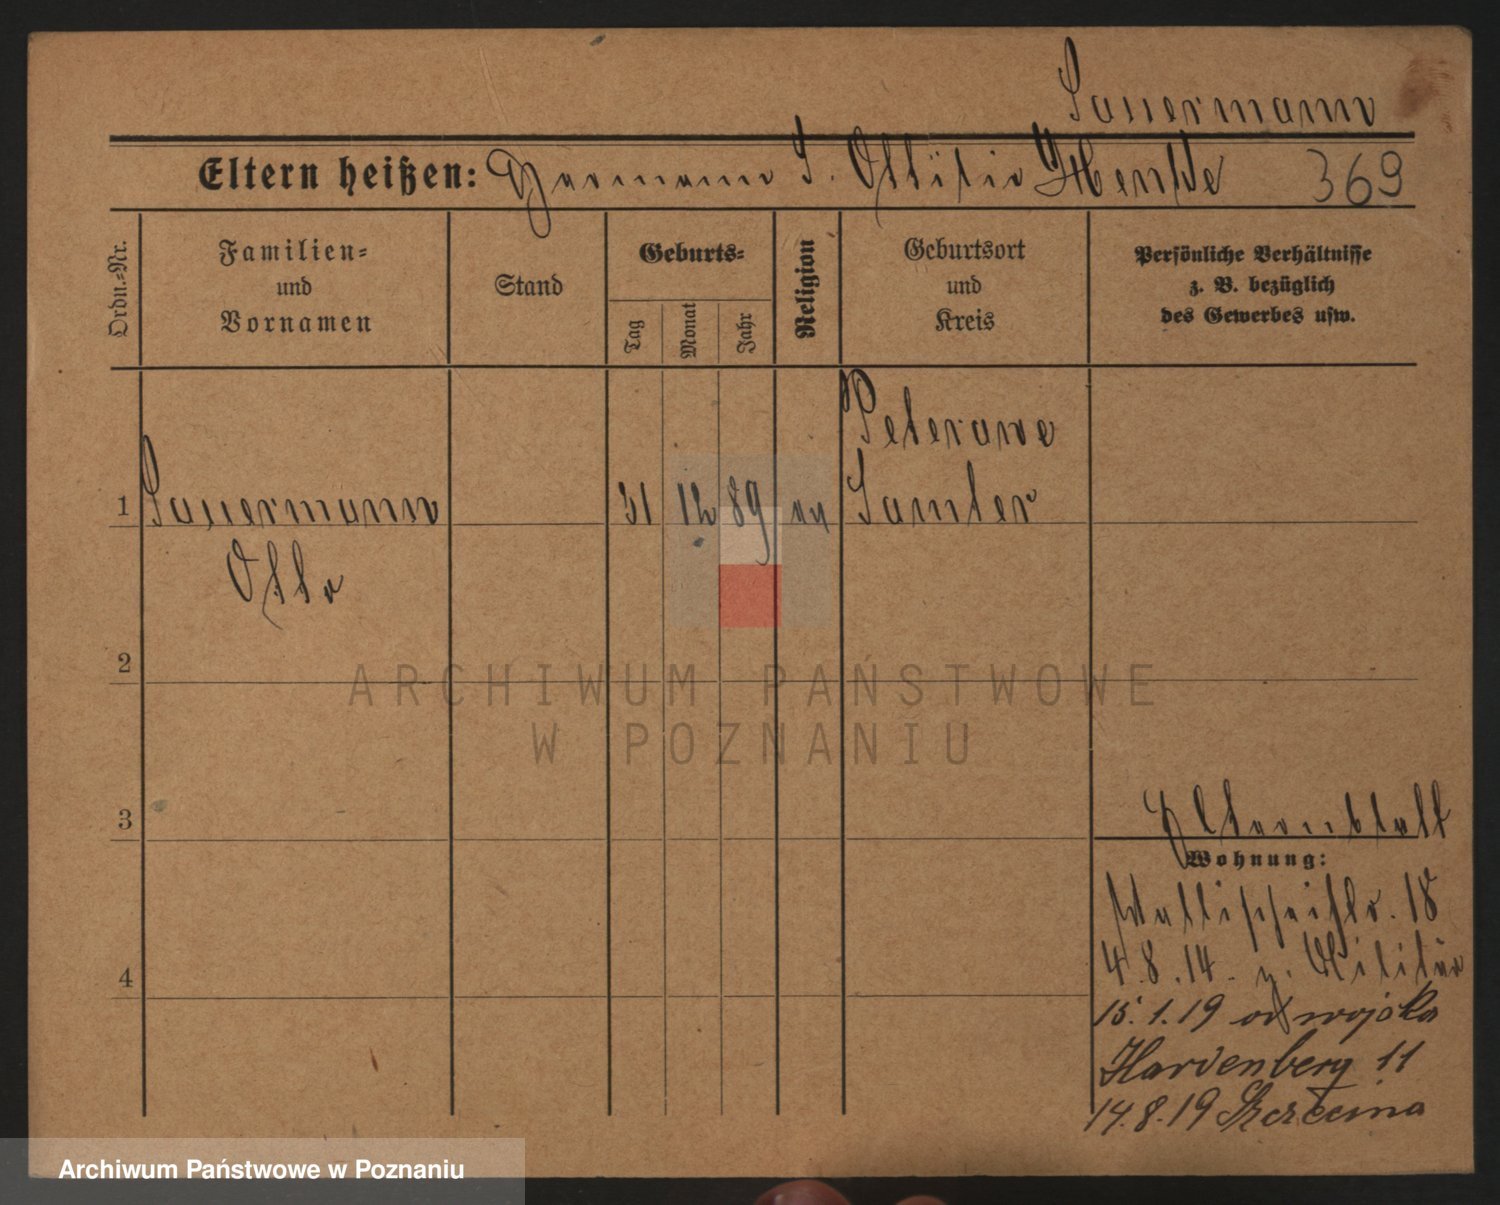 Sauermann
Eltern heißen: Hermann S. Ottilie Henske 369
Ordn.-Nr.
Familien-
und
Vornamen
Stand
Geburts-
Tag
Monat
Jahr
Religion
Geburtsort
und
Kreis
Persönliche Verhältnisse
z. B. bezüglich
des Gewerbes usw.
Peterawe
1 Sauermann 31 12 89 ev Samter
Otto
2
3
4
Elternblatt
Wohnung:
Wallischeistr. 18
4.8.14. z. Militär
15.1.19 od wojska
Hardenberg 11
14.8.19 Szczecina
ARCHIWUM PAŃSTWOWE
W POZNANIU
Archiwum Państwowe w Poznaniu